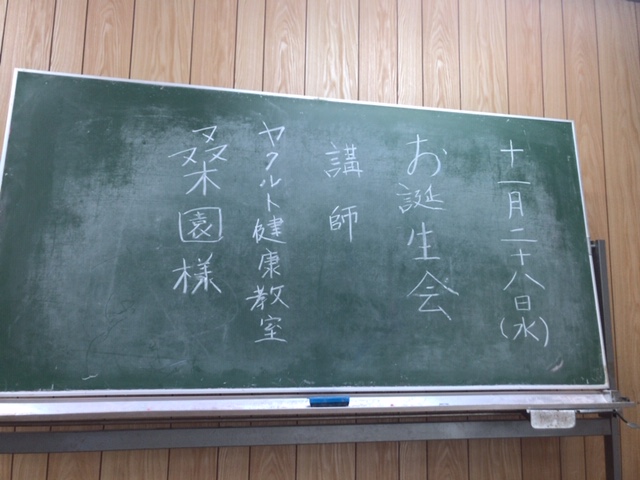 十一月二十八日(水)
お誕生会
講師
ヤクルト健康教室
桑園様